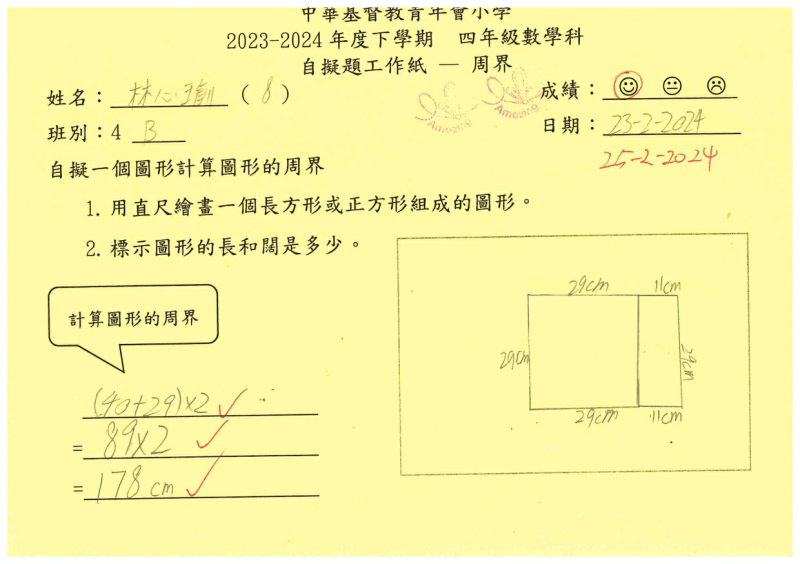 中華基督教青年會小學
2023-2024 年度下學期 四年級數學科
自擬題工作紙 — 周界
姓名：林心瑜 （8）
成績：
Amazing
Amazing
班別：4 B
日期：23-2-2024
25-2-2024
自擬一個圖形計算圖形的周界
1. 用直尺繪畫一個長方形或正方形組成的圖形。
2. 標示圖形的長和闊是多少。
計算圖形的周界
29cm 11cm
29cm 29cm
29cm 11cm
(40+29)×2
= 89×2
= 178 cm